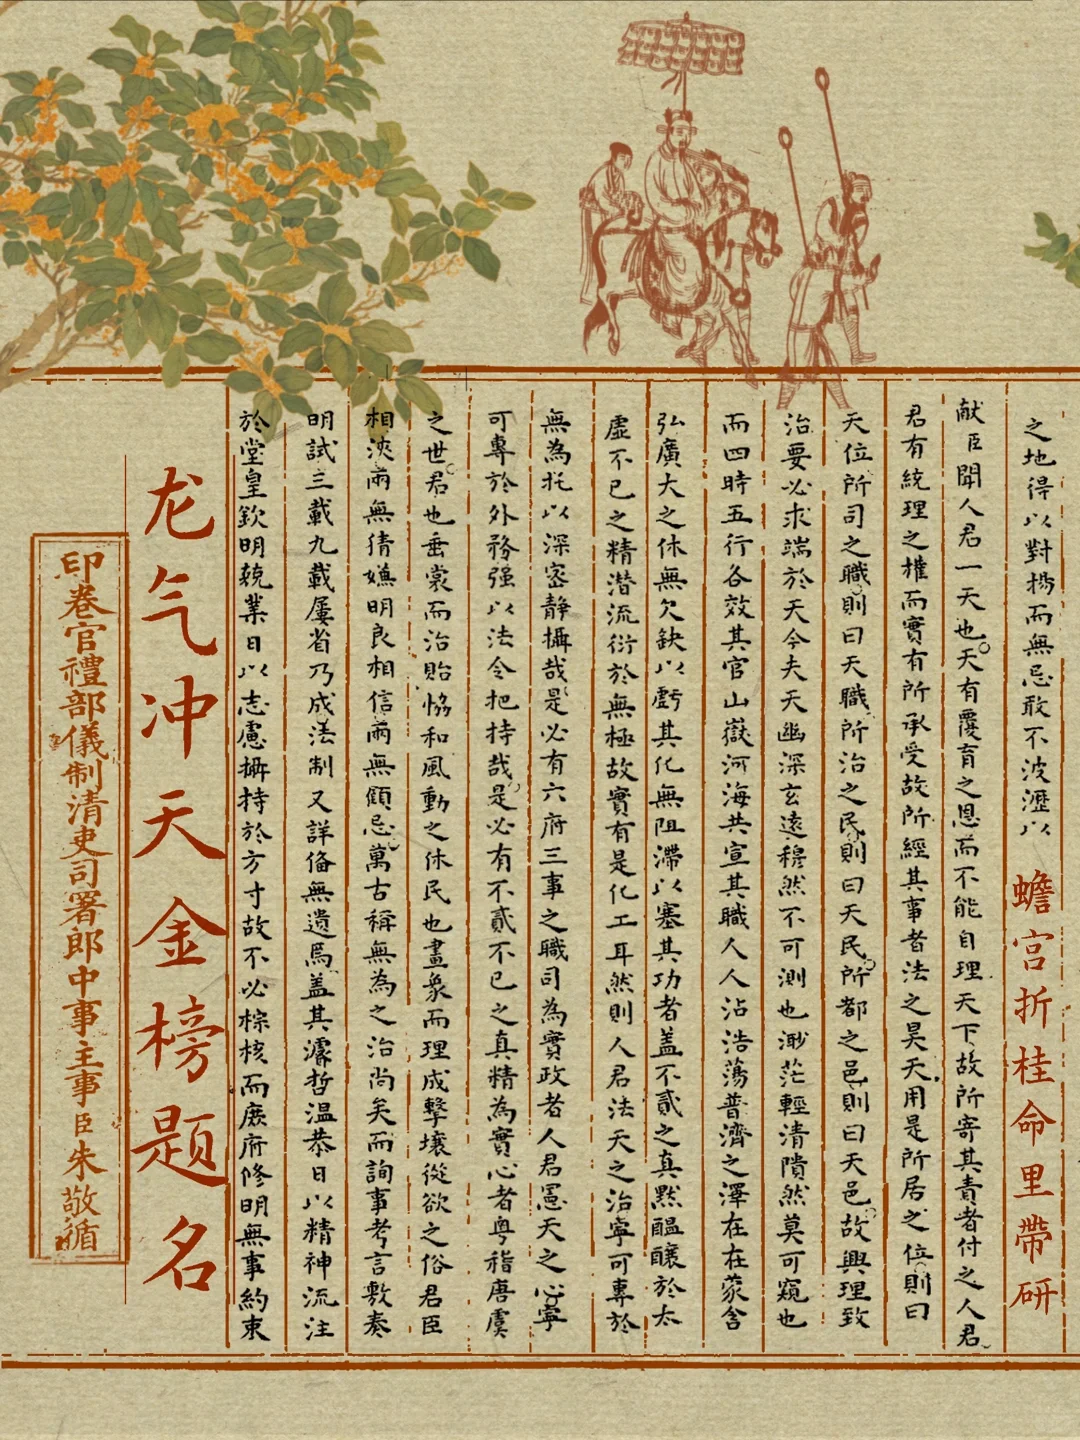 之地得以對揚而無忌敢不波瀝以
蟾宫折桂命里帶研
献臣聞人君一天也天有覆育之恩而不能自理天下故所寄其責者付之人君
君有統理之權而實有所承受故所經其事者法之昊天用是所居之位則曰
天位所司之職則曰天職所治之民則曰天民所都之邑則曰天邑故興理致
治要必求端於天今夫天幽深玄遠穆然不可測也渺茫輕清隤然莫可窺也
而四時五行各效其官山嶽河海共宣其職人人沾浩蕩普濟之澤在在蒙含
弘廣大之休無欠缺以虧其化無阻滯以塞其功者盖不貳之真默醖釀於太
虛不已之精潛流衍於無極故實有是化工耳然則人君法天之治寧可專於
無為托以深宻静攝哉是必有六府三事之職司為實政者人君憲天之心寧
可專於外務强以法令把持哉是必有不貳不已之真精為實心者粤稽唐虞
之世君也垂裳而治貽恊和風動之休民也畫象而理成擊壤從欲之俗君臣
相浹兩無猜嫌明良相信兩無顧忌萬古稱無為之治尚矣而詢事考言敷奏
明試三載九載屢省乃成法制又詳偹無遺焉盖其濬哲温恭日以精神流注
於堂皇欽明兢業日以志慮攝持於方寸故不必綜核而庶府修明無事約束
龙气冲天金榜题名
印卷官禮部儀制清吏司署郎中事主事臣朱敬循